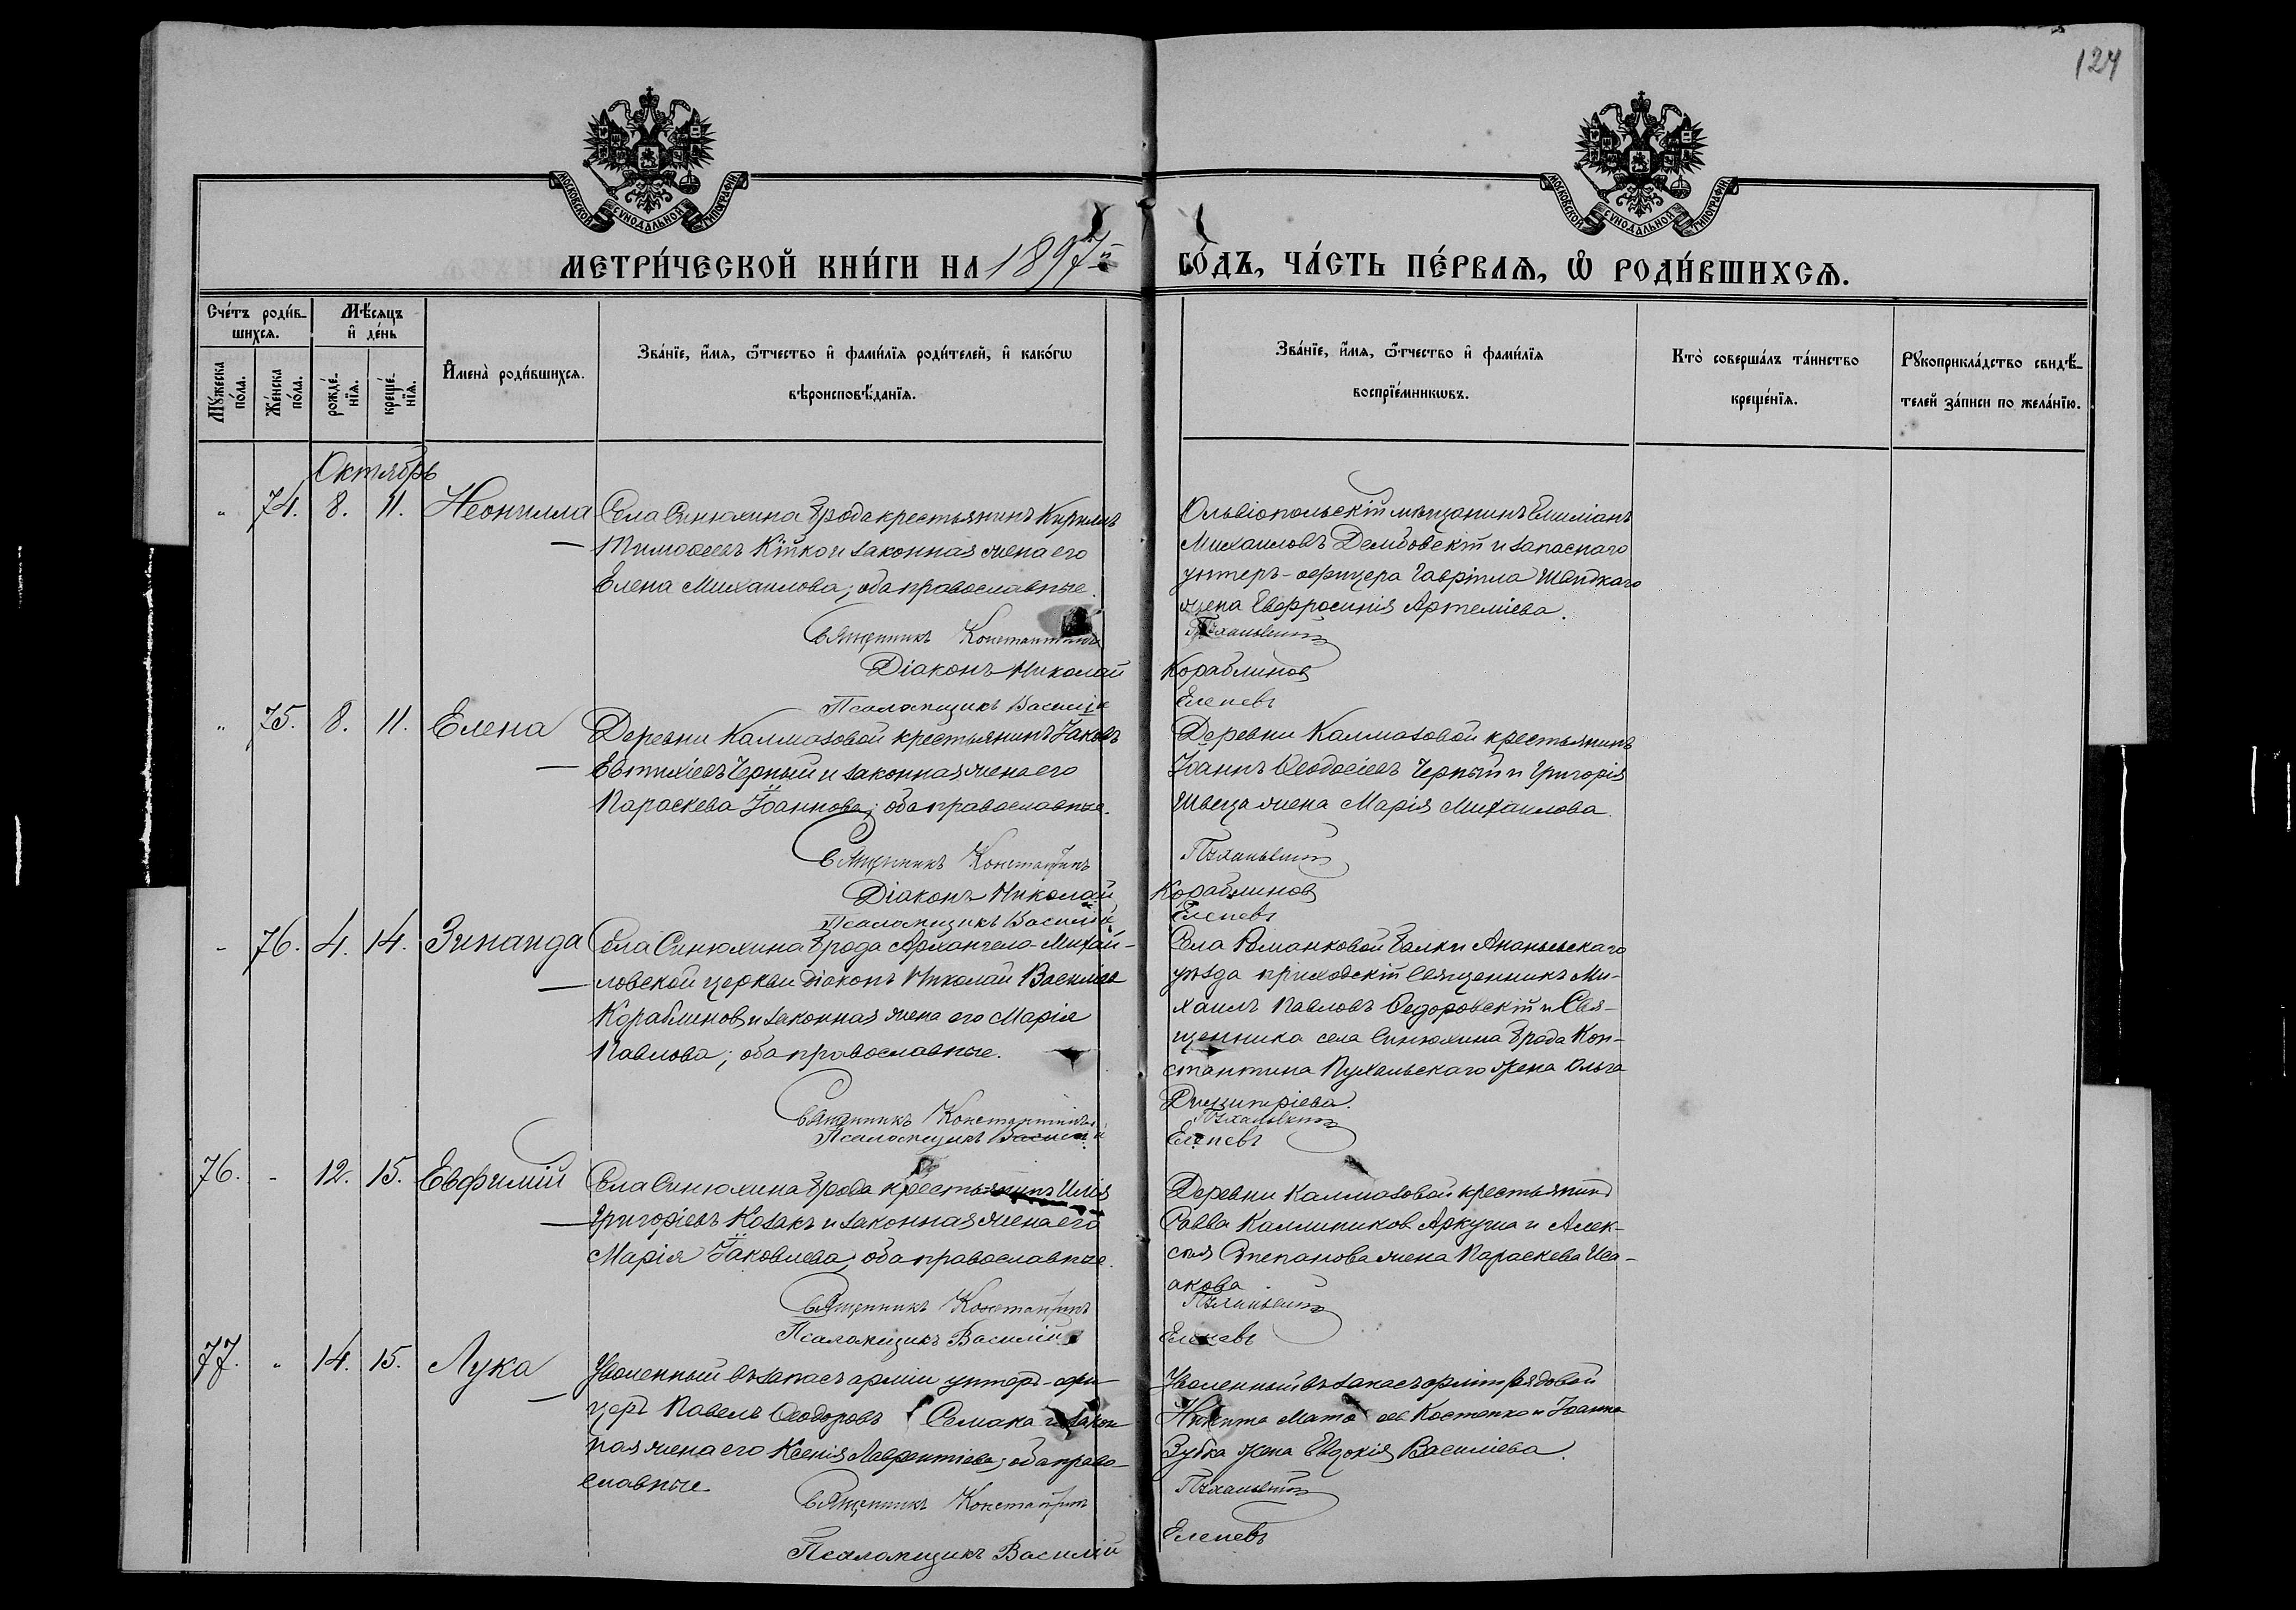 124
МОСКОВСКОЙ СѴНОДАЛЬНОЙ ТИПОГРАФІИ.
МОСКОВСКОЙ СѴНОДАЛЬНОЙ ТИПОГРАФІИ.
МЕТРИ́ЧЕСКОЙ КНИ́ГИ НА 1897й
ГО́ДЪ, ЧА́СТЬ ПЕ́РВАѦ, Ѡ РОДИ́ВШИХСѦ.
Сче́тъ роди́в-
шихсѧ.
Мѣ́сѧцъ
и҆ де́нь
Мꙋ́жеска
по́ла.
Же́нска
по́ла.
рожде́-
нїѧ.
креще́-
нїѧ.
И҆мена̀ роди́вшихсѧ.
Зва́нїе, и҆́мѧ, ѻ҆́тчество и҆ фами́лїѧ роди́телей, и҆ како́гѡ
вѣроисповѣ́данїѧ.
Зва́нїе, и҆́мѧ, ѻ҆́тчество и҆ фами́лїѧ
воспрїе́мникѡвъ.
Кто̀ соверша́лъ та́инство
креще́нїѧ.
Рꙋкоприкла́дство свидѣ́-
телей за́писи по жела́нїю.
Октябрь
" 74. 8. 11. Неонилла
Села Синюхина Брода крестьянинъ Кириллъ
Тимоѳеевъ Кійко и законная жена его
Елена Михаилова; оба православные.
Священникъ Константинъ
Діаконъ Николай
Псаломщикъ Василій
Ольвіопольскій мѣщанинъ Емиліанъ
Михаиловъ Делидовскій и запаснаго
унтеръ-офицера Гавріила
жена Евфросинія Артеміева.
Пухальскій
Кораблиновъ
Еленевъ
" 75. 8. 11. Елена
Деревни Калмазовой крестьянинъ Іаковъ
Евтихіевъ Черный и законная жена его
Параскева Іоаннова; оба православные.
Священникъ Константинъ
Діаконъ Николай
Псаломщикъ Василій
Деревни Калмазовой крестьянинъ
Іоаннъ Ѳеодосіевъ Черный и Григорія
Швеца жена Марія Михаилова.
Пухальскій
Кораблиновъ
Еленевъ
" 76. 4. 14. Зинаида
Села Синюхина Брода Архангело-Михай-
ловской церкви діаконъ Николай Василіевъ
Кораблиновъ и законная жена его Марія
Павлова; оба православные.
Священникъ Константинъ
Псаломщикъ Василій
Села Романковой Балки Ананьевскаго
уѣзда приходскій Священникъ Ми-
хаилъ Павловъ Ѳедоровскій и Свя-
щенника села Синюхина Брода Кон-
стантина Пухальскаго жена Ольга
Димитріева.
Пухальскій
Еленевъ
76. - 12. 15. Евфимій
Села Синюхина Брода крестьянинъ Илія
Григоріевъ Козакъ и законная жена его
Марія Іаковлева; оба православные.
Священникъ Константинъ
Псаломщикъ Василій
Деревни Калмазовой крестьянинъ
Савва Каллиниковъ Аркуша и Алек-
сія Степанова жена Параскева Иса-
акова
Пухальскій
Еленевъ
77. " 14. 15. Лука
Уволенный въ запасъ арміи унтеръ-офи-
церъ Павелъ Ѳеодоровъ Семака и закон-
ная жена его Ксенія Лаврентіева; оба право-
славные
Священникъ Константинъ
Псаломщикъ Василій
Уволенный въ запасъ арміи рядовой
Никита Матѳеевъ Костенко и Іоанна
Зубка жена Евдокія Василіева.
Пухальскій
Еленевъ